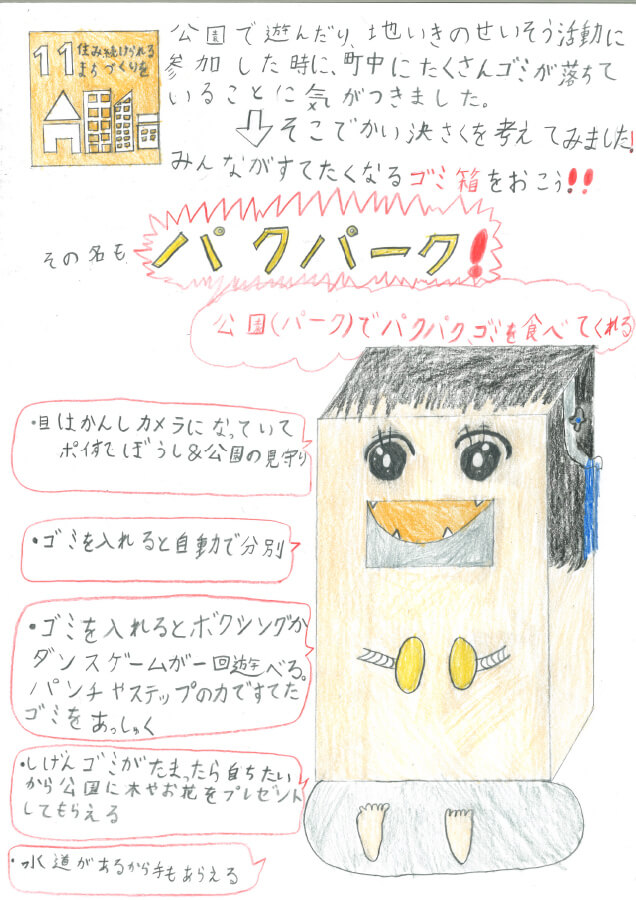 11 住み続けられる
まちづくりを
公園で遊んだり、地いきのせいそう活動に
参加した時に、町中にたくさんゴミが落ちて
いることに気がつきました。
そこでかい決さくを考えてみました!
みんながすてたくなるゴミ箱をおこう!!
その名も
パクパーク!
公園(パーク)でパクパク、ゴミを食べてくれる
・目はかんしカメラになっていて
ポイすてぼうし&公園の見守り
・ゴミを入れると自動で分別
・ゴミを入れるとボクシングか
ダンスゲームが一回遊べる。
パンチやステップの力ですてた
ゴミをあっしゅく
・しげんゴミがたまったら自ちたい
から公園に木やお花をプレゼント
してもらえる
・水道があるから手もあらえる